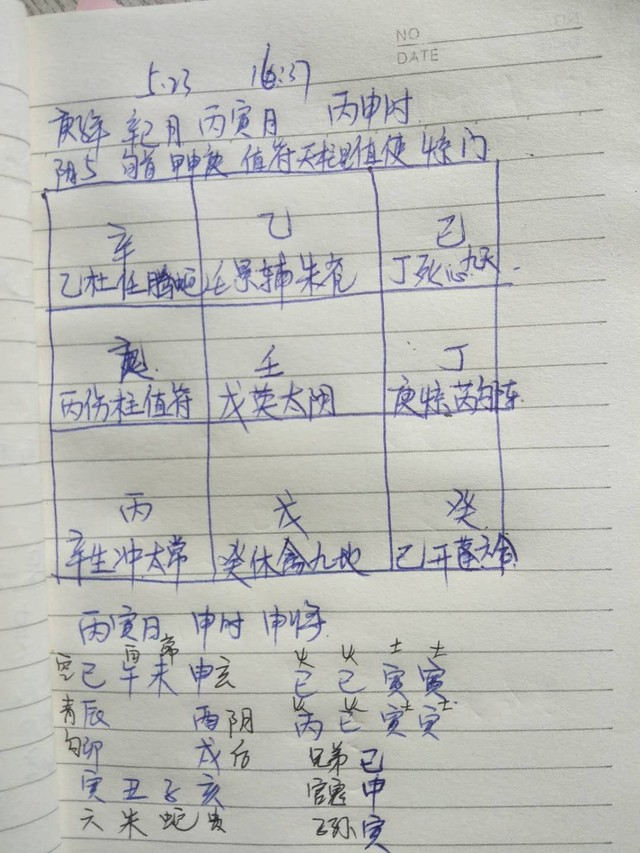 NO
DATE
5.23 16:37
庚子年 辛巳月 丙寅月 丙申时
阴5 旬首 甲申庚 值符天柱星值使 惊门
辛 乙 己
乙杜任腾蛇 壬景辅朱雀 丁死心九天
庚 壬 丁
丙伤柱值符 戊英太阴 庚惊芮勾陈
丙 戊 癸
辛生冲太常 癸休禽九地 己开蓬六合
丙寅日 申时 申将
火 火 土 土
空巳 午 未 申 巳 巳 寅 寅
青辰 酉阴 丙 巳 寅 寅
勾卯 戌后 兄弟 巳
寅 丑 子 亥 官鬼 申
六 朱 蛇 贵 子孙 寅